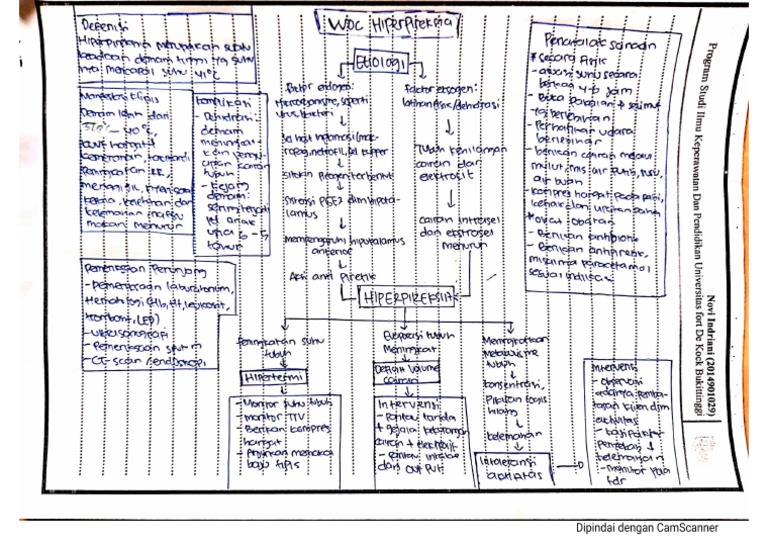 WOC Hiperpireksia
Defenisi
Hiperpireksia merupakan suhu
keadaan demam tinggi yg suhu
nya mencapai suhu 41°C
Manifestasi klinis
Demam lebih dari
- 40°C,
kulit hangat
takikardi
RR,
menggigil,
kelemahan
makan menurun
komplikasi
- Dehidrasi:
demam
meningkat
kan
uapan cairan
tubuh
- Kejang
demam:
sering terjadi
pd anak
usia 6 - 5
tahun
Pemeriksaan Penunjang
- Pemeriksaan laboratorium,
Hematologi (Hb, Ht, leukosit,
trombosit, LED)
- Ultrasonografi
- Pemeriksaan sputum
- CT-scan / endoskopi
Etiologi
Faktor endogen:
Mikroorganisme, seperti
virus, bakteri
Sel host inflamasi (mac-
ropag, netrofil, sel kupper
Sitokin Pirogen terbentuk
Sintesis PGE2 dlm hipota-
lamus
mempengaruhi hipotalamus
anterior
Aksi anti Piretik
Factor eksogen:
latihan fisik/dehidrasi
Tubuh kehilangan
cairan dan
elektrolit
cairan intrasel
dan ekstrasel
menurun
HIPERPIREKSIA
Penatalaksanaan
* secara Fisik
- awasi suhu secara
berkala 4-6 jam
- Buka pakaian & selimut
yg berlebihan
- Perhatikan udara
- berikan cairan melalui
mulut, mis air putih, susu,
air buah
- kompres hangat pada dahi,
ketiak dan
* obat-obatan
- Berikan antibiotik
- Berikan antipiretik,
misalnya paracetamol
sesuai indikasi
Peningkatan suhu
tubuh
Hipertermi
- Monitor suhu tubuh
- monitor TTV
- Berikan kompres
hangat
- Anjurkan memakai
baju tipis
Evaporasi tubuh
Meningkat
Defisit Volume
cairan
Intervensi
- Pantau tanda
+ gejala kekurangan
cairan + elektrolit
- pantau intake
dan out put
Meningkatkan
Metabolisme
tubuh
hilang
kelemahan
Intoleransi
aktivitas
Intervensi
- observasi
adanya pemba-
tasan klien dlm
aktivitas
- kaji
kelemahan
- monitor pola
tdr
Novi Indriani (2014901029)
Program Studi Ilmu Keperawatan Dan Pendidikan Universitas fort De Kock Bukittinggi
Dipindai dengan CamScanner